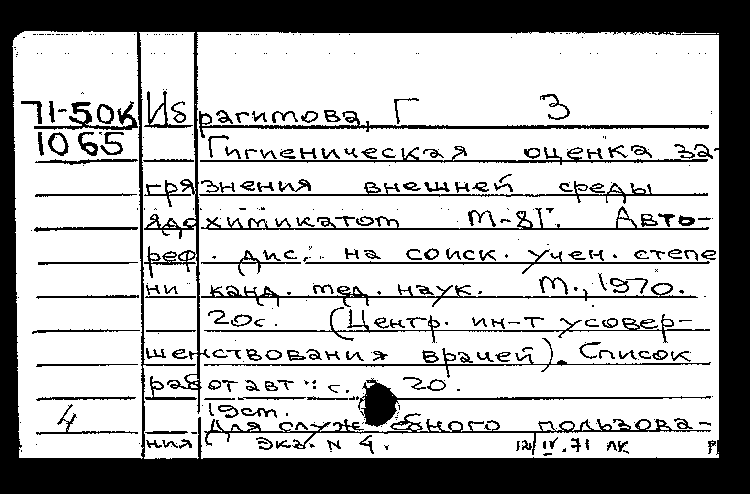 71-50к Ибрагимова, Г З
1065 Гигиеническая оценка за-
грязнения внешней среды
ядохимикатом М-81. Авто-
реф. дис. на соиск. учен. степе
ни канд. мед. наук. М., 1970.
20с. (Центр. ин-т усовер-
шенствования врачей). Список
работ авт.: с. 20.
19ст.
4 Для служебного пользова-
ния. Экз. N 4. 12/IV.71 ЛК